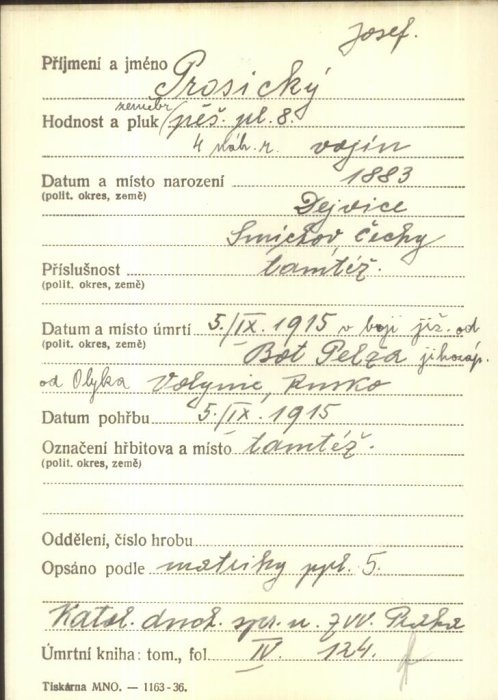 Josef.
Příjmení a jméno Prosický
zeměbr
Hodnost a pluk pěš. pl. 8.
4 náh. r. vojín
Datum a místo narození 1883
(polit. okres, země)
Dejvice
Smíchov, Čechy
Příslušnost tamtéž.
(polit. okres, země)
Datum a místo úmrtí 5./IX. 1915 v boji již. od
(polit. okres, země) Bot Pelza jihozáp.
od Olyka Volynie, Rusko
Datum pohřbu 5./IX. 1915
Označení hřbitova a místo tamtéž.
(polit. okres, země)
Oddělení, číslo hrobu
Opsáno podle matriky ppl. 5.
Katol. duch. spr. u ZVV. Praha
Úmrtní kniha: tom., fol. IV. 124.
Tiskárna MNO. — 1163-36.